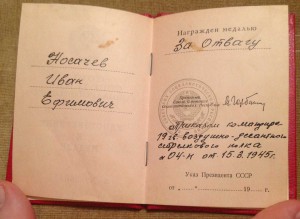 Носачев
Иван
Ефимович
Награжден медалью
За Отвагу
Приказом командира
19 воздушно-десантного
стрелкового полка
№ 04-н от 15.3.1945г.
Указ Президента СССР
от « » 19 г.